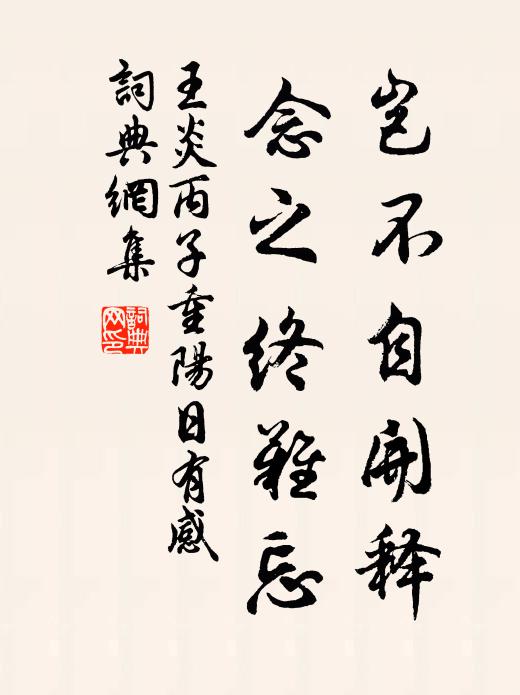 岂不自開释
念之终難忘
王炎丙子重陽日有感
詞典網集
詞典
网印